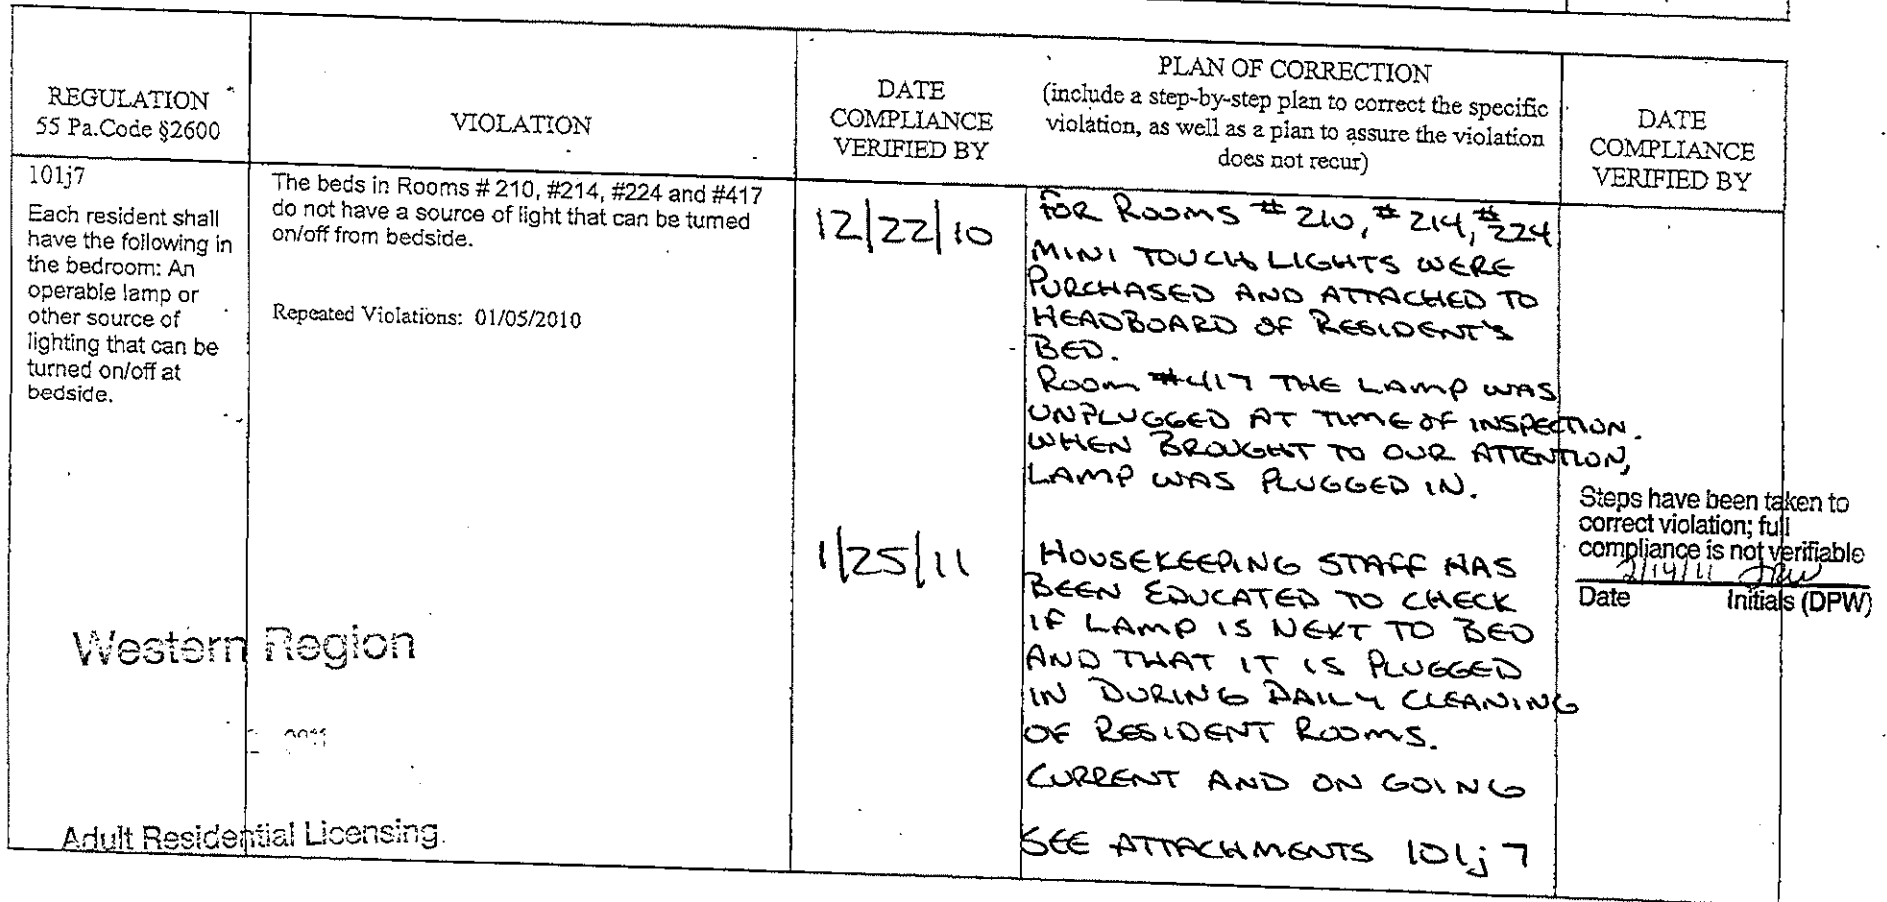 REGULATION
55 Pa.Code §2600
VIOLATION
DATE
COMPLIANCE
VERIFIED BY
PLAN OF CORRECTION
(include a step-by-step plan to correct the specific
violation, as well as a plan to assure the violation
does not recur)
DATE
COMPLIANCE
VERIFIED BY
101j7
Each resident shall
have the following in
the bedroom: An
operable lamp or
other source of
lighting that can be
turned on/off at
bedside.
The beds in Rooms # 210, #214, #224 and #417
do not have a source of light that can be turned
on/off from bedside.
Repeated Violations: 01/05/2010
12/22/10
FOR ROOMS # 210, # 214, # 224
MINI TOUCH LIGHTS WERE
PURCHASED AND ATTACHED TO
HEADBOARD OF RESIDENT'S
BED.
ROOM #417 THE LAMP WAS
UNPLUGGED AT TIME OF INSPECTION.
WHEN BROUGHT TO OUR ATTENTION,
LAMP WAS PLUGGED IN.
1/25/11
HOUSEKEEPING STAFF HAS
BEEN EDUCATED TO CHECK
IF LAMP IS NEXT TO BED
AND THAT IT IS PLUGGED
IN DURING DAILY CLEANING
OF RESIDENT ROOMS.
CURRENT AND ON GOING
SEE ATTACHMENTS 101j7
Steps have been taken to
correct violation; full
compliance is not verifiable
2/14/11
Date Initials (DPW)
Western Region
Adult Residential Licensing